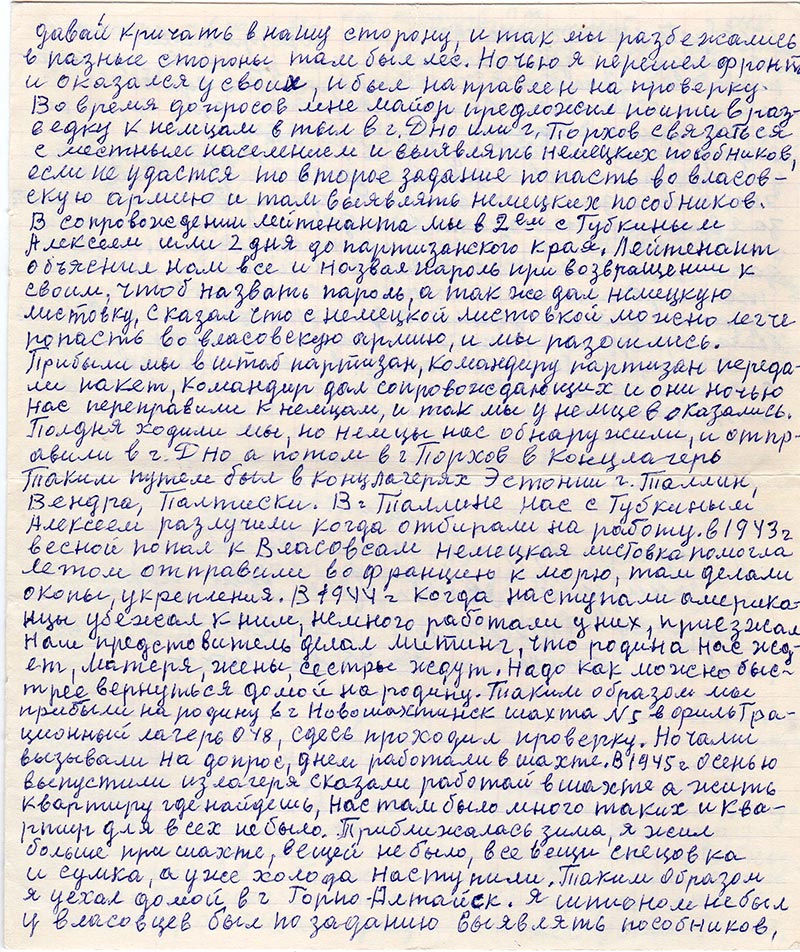 давай кричать в нашу сторону, и так мы разбежались
в разные стороны там был лес. Ночью я перешел фронт
и оказался у своих, и был направлен на проверку.
Во время допросов мне майор предложил пойти в раз-
ведку к немцам в тыл в г. Дно или г. Порхов связаться
с местным населением и выявлять немецких пособников,
если не удастся то второе задание попасть во власов-
скую армию и там выявлять немецких пособников.
В сопровождении лейтенанта мы в 2ем с Губкиным
Алексеем шли 2 дня до партизанского края. Лейтенант
объяснил нам все и назвал пароль при возвращении к
своим, чтоб назвать пароль, а так же дал немецкую
листовку, сказал что с немецкой листовкой можно легче
попасть во власовскую армию, и мы разошлись.
Прибыли мы в штаб партизан, командиру партизан переда-
ли пакет, командир дал сопровождающих и они ночью
нас переправили к немцам, и так мы у немцев оказались.
Полдня ходили мы, но немцы нас обнаружили, и отпр-
авили в г. Дно а потом в г Порхов в Концлагерь
Таким путем был в концлагерях Эстонии г. Таллин,
Вендра, Палтиски. В г Таллине нас с Губкиным
Алексеем разлучили когда отбирали на работу. в 1943г
весной попал к Власовсам немецкая листовка помогла
летом отправили во францию к морю, там делали
окопы, укрепления. В 1944 г когда наступали америка-
нцы убежал к ним, немного работали у них, приезжал
наш предстовитель делал митинг, что родина нас жд-
ет, матеря, жены, сестры ждут. Надо как можно быс-
трее вернуться домой на родину. Таким образом мы
прибыли на родину в г Новошахтинск шахта №5 в фильтра-
ционный лагерь 048, сдесь проходил проверку. Ночами
вызывали на допрос, днем работали в шахте. В 1945г осенью
выпустили из лагеря сказали работай в шахте а жить
квартиру где найдешь, нас там было много таких и ква-
ртир для всех не было. Приближалась зима, я жил
больше при шахте, вещей не было, все вещи спецовка
и сумка, а уже холода наступили. Таким образом
я уехал домой в г Горно-Алтайск. Я шпионом не был
у власовцев был по заданию выявлять пособников,